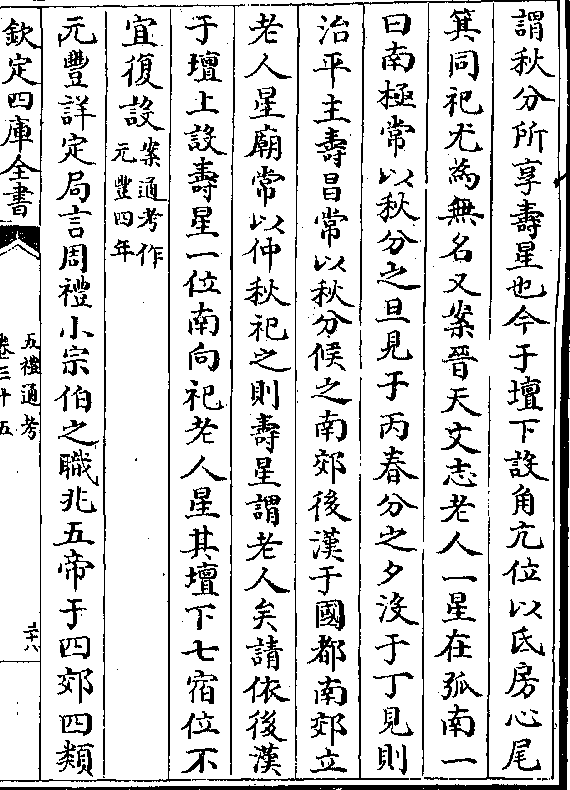 謂秋分所享壽星也今于壇下設角亢位以氐房心尾
箕同祀尤為無名又案晉天文志老人一星在弧南一
曰南極常以秋分之旦見于丙春分之夕没于丁見則
治平主壽昌常以秋分候之南郊後漢于國都南郊立
老人星廟常以仲秋祀之則壽星謂老人矣請依後漢
于壇上設壽星一位南向祀老人星其壇下七宿位不
宜復設案通考作元豐四年
元豐詳定局言周禮小宗伯之職兆五帝于四郊四類
欽定四庫全書
五禮通考
卷三十五